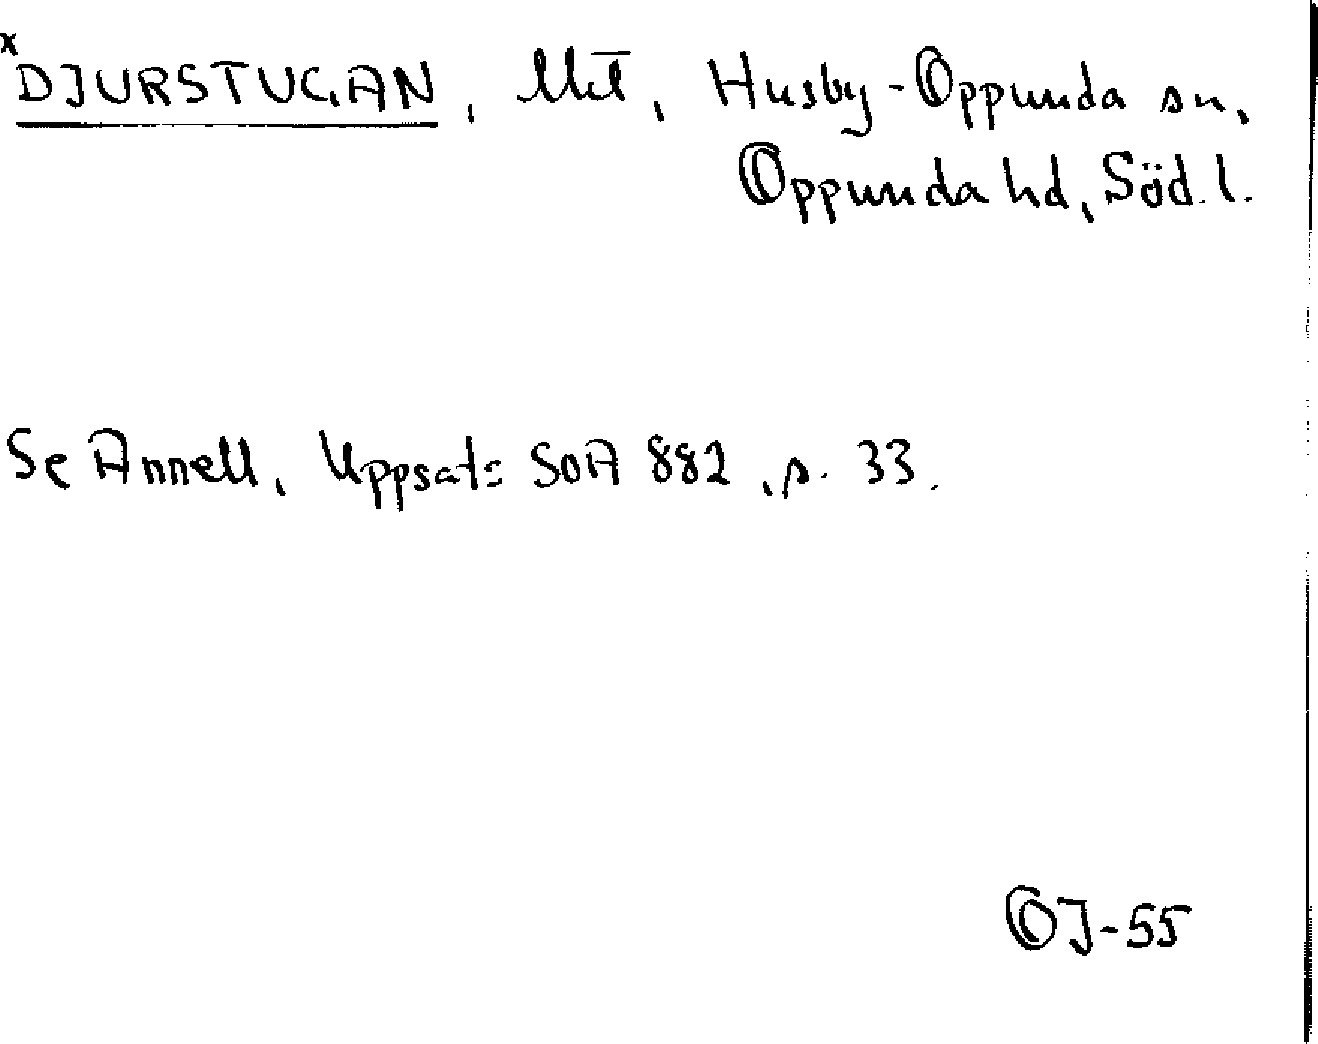 x DJURSTUGAN, Ukt, Husby-Oppunda sn,
Oppunda hd, Söd. l.
Se Annell, Uppsats SOA 882, s. 33.
OJ-55